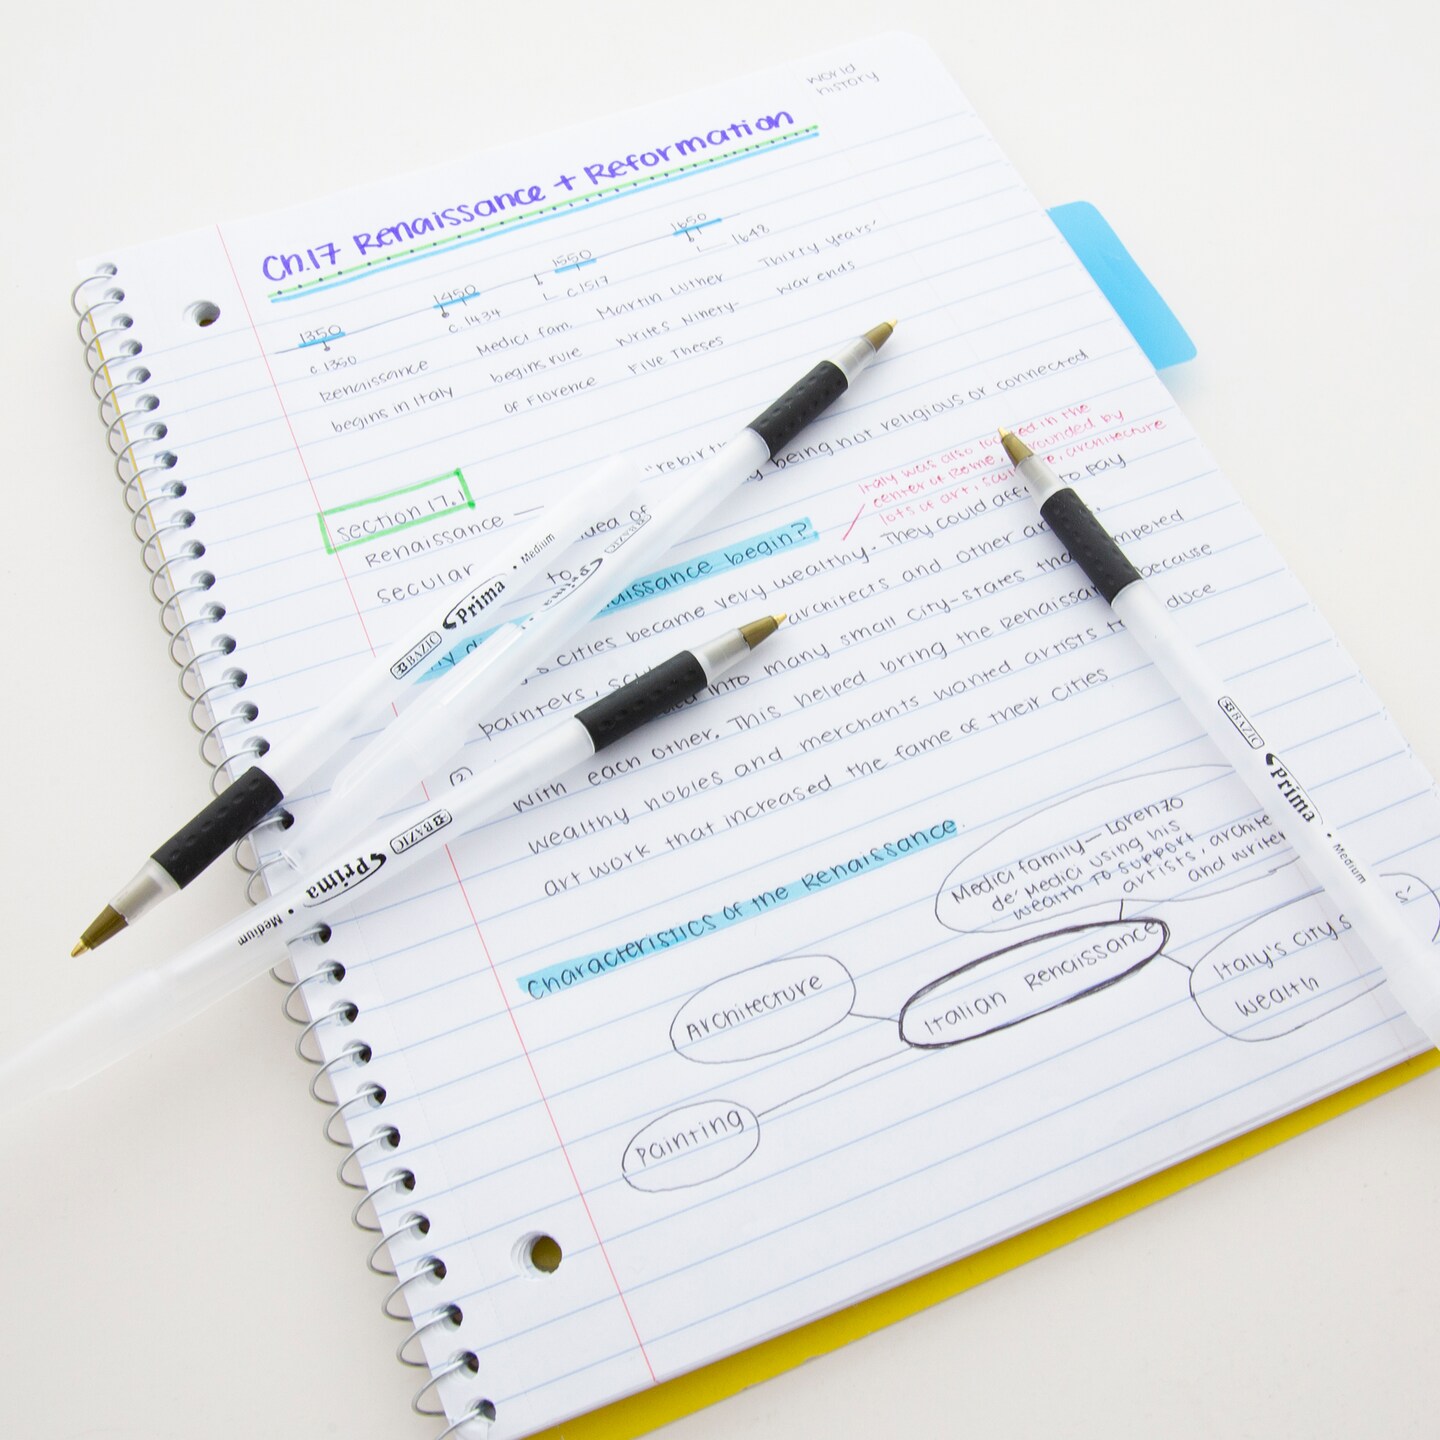 world
history
Ch.17 Renaissance + Reformation
1350
1450
1550
1650
c 1350
c 1434
c 1517
1648
Renaissance
begins in Italy
Medici fam.
begins rule
of Florence
Martin Luther
writes Ninety-
Five Theses
Thirty Years'
war ends
section 17.1
Renaissance — "rebirth
secular being not religious or connected
to
Italy was also in the
center of Rome, by
lots of art, architecture
Renaissance begin?
cities became very wealthy. They could to pay
painters, architects and other
② into many small city-states
with each other. This helped bring the because
wealthy nobles and merchants wanted artists
art work that increased the fame of their cities
Characteristics of the Renaissance
Medici family — Lorenzo
de' Medici using his
wealth to support
artists,
and writer
Italian Renaissance
Architecture
Painting
Italy's city
wealth
BAZIC Prima • Medium
BAZIC Prima
BAZIC Prima • Medium
BAZIC Prima • Medium